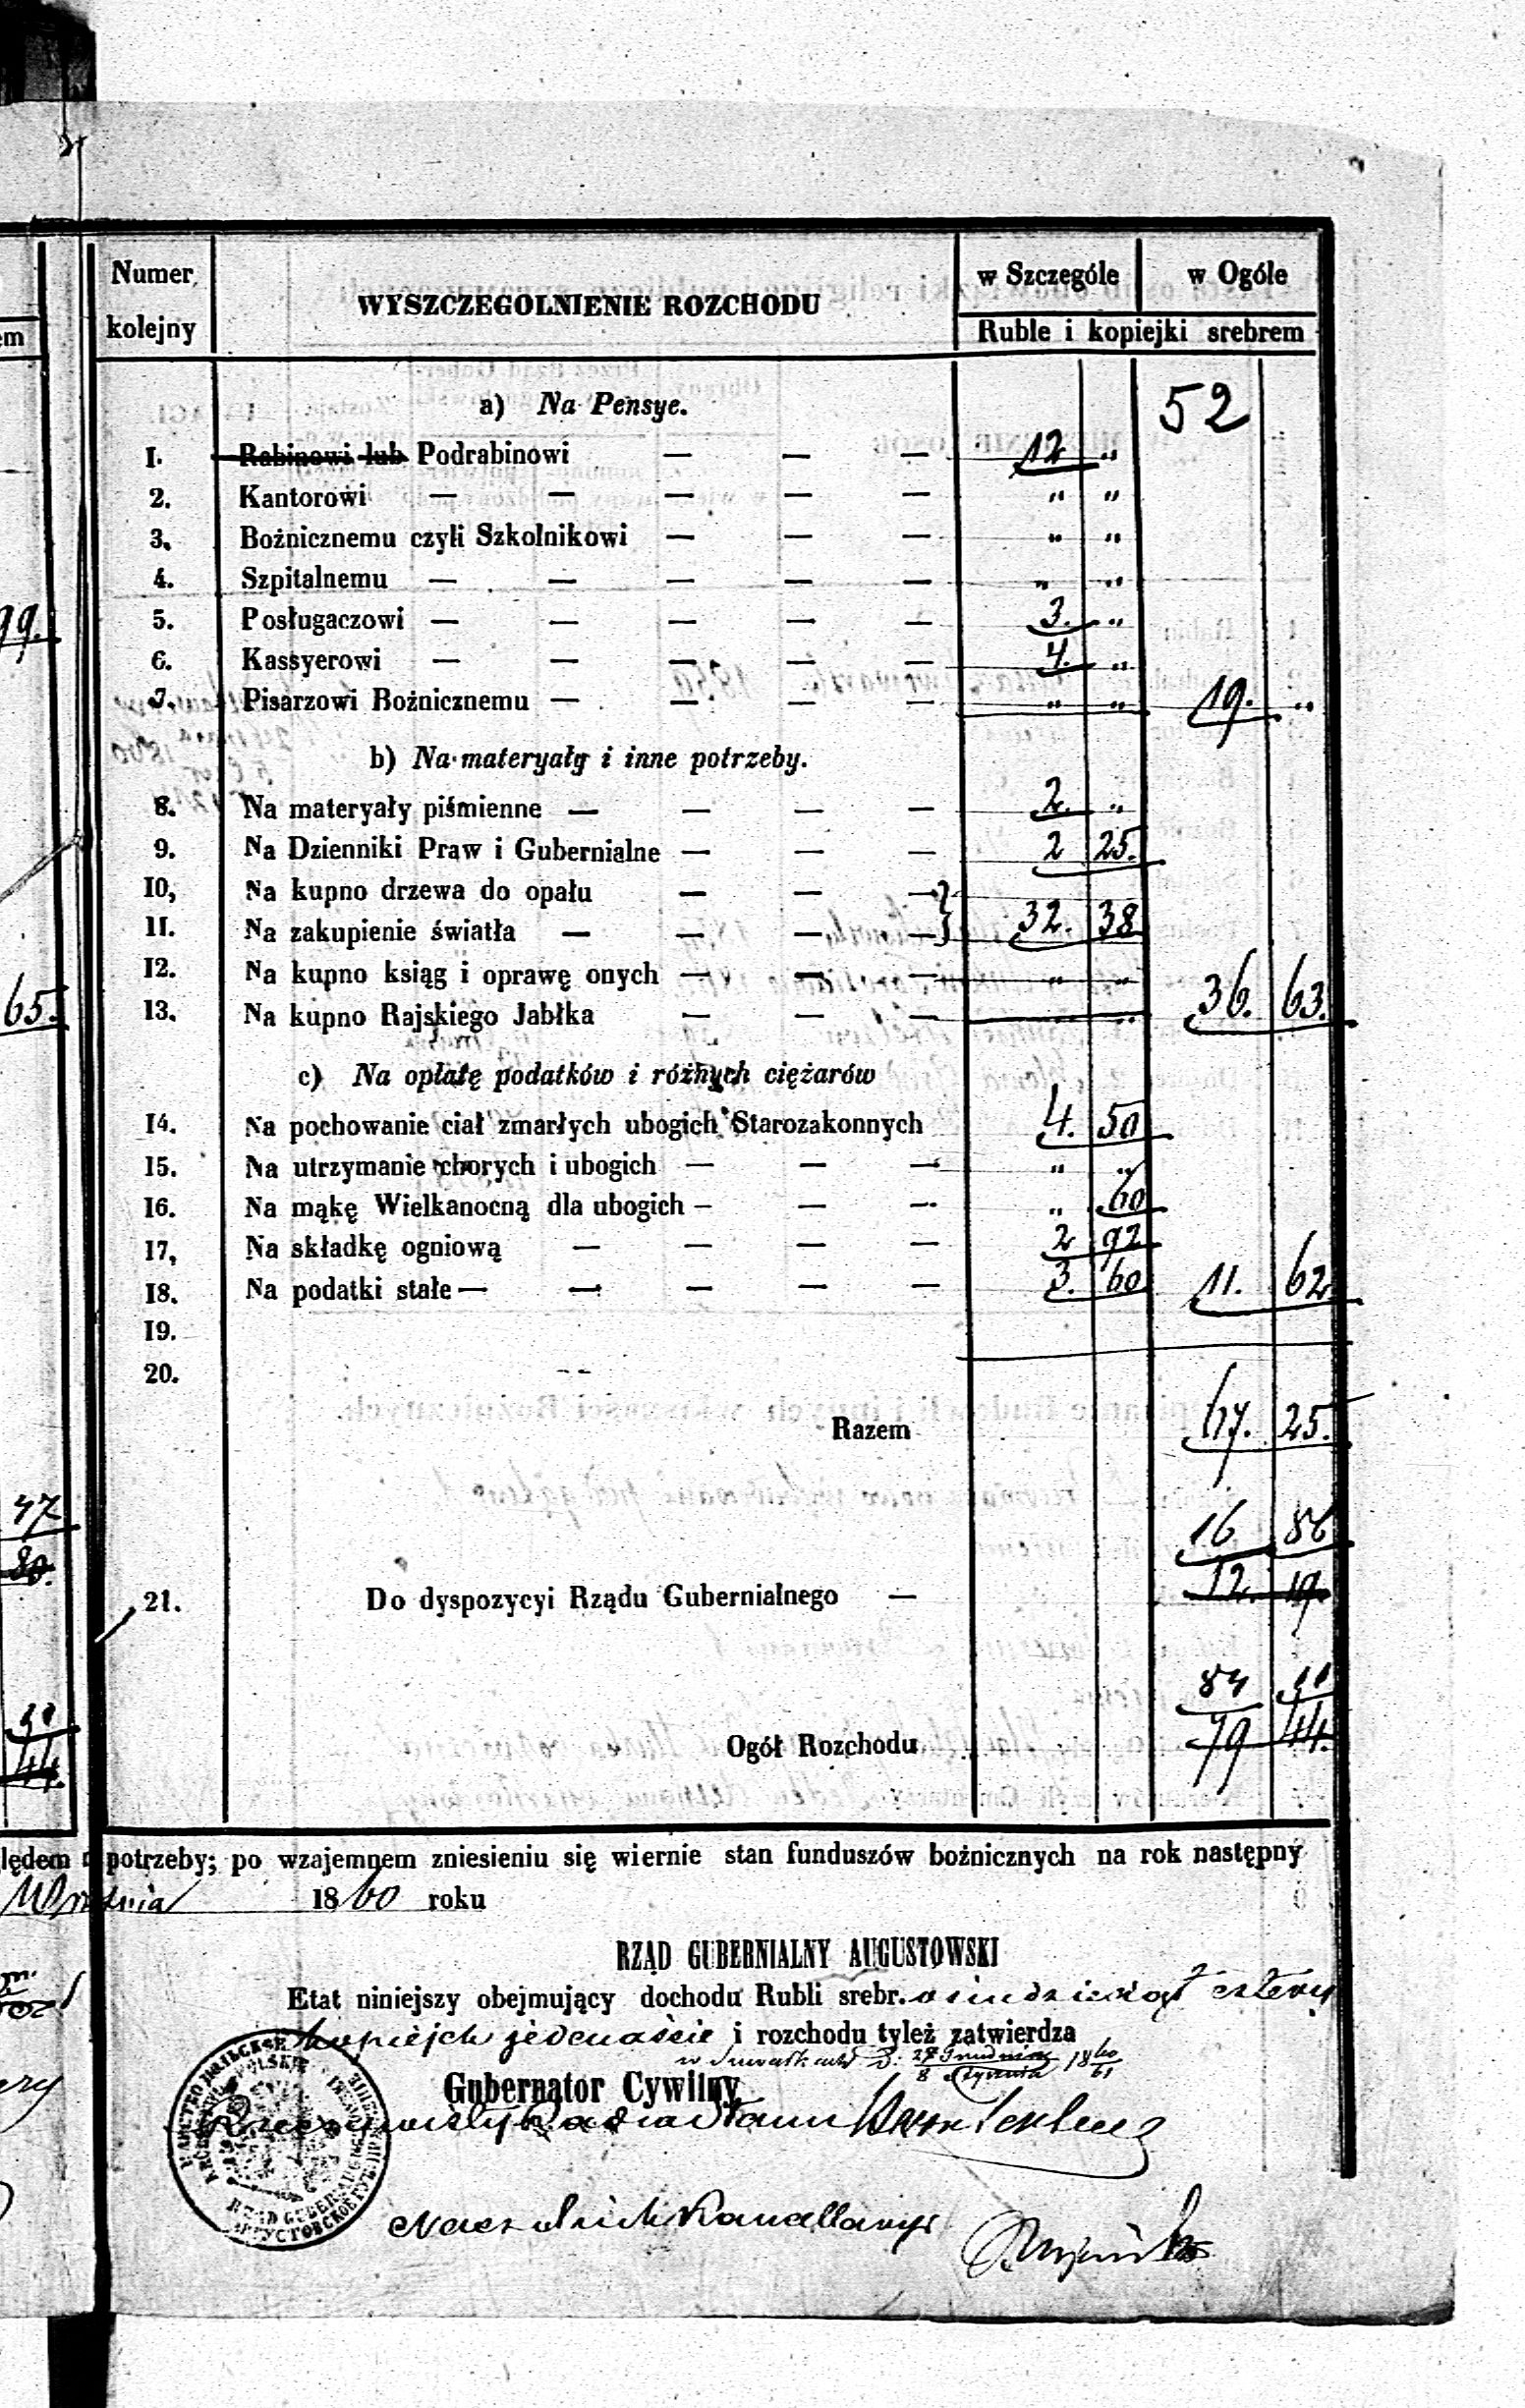 Numer kolejny WYSZCZEGOLNIENIE ROZCHODU w Szczególe w Ogóle
Ruble i kopiejki srebrem
52
a) Na Pensye.
1. Rabinowi lub Podrabinowi — — — 12 „
2. Kantorowi — — — — — „ „
3. Bożnicznemu czyli Szkolnikowi — — — „ „
4. Szpitalnemu — — — — — „ „
5. Posługaczowi — — — — — 3. „
6. Kassyerowi — — — — — 4. „
7. Pisarzowi Bożnicznemu — — — — „ „ 19. „
b) Na materyały i inne potrzeby.
8. Na materyały piśmienne — — — — 2. „
9. Na Dzienniki Praw i Gubernialne — — — 2 25.
10, Na kupno drzewa do opału — — —
11. Na zakupienie światła — — — — } 32. 38
12. Na kupno ksiąg i oprawę onych — — — „ „
13. Na kupno Rajskiego Jabłka — — — „ 36. 63.
c) Na opłatę podatków i różnych ciężarów
14. Na pochowanie ciał zmarłych ubogich Starozakonnych 4. 50
15. Na utrzymanie chorych i ubogich — — — „ „
16. Na mąkę Wielkanocną dla ubogich — — — „ 60
17, Na składkę ogniową — — — — 2 92
18. Na podatki stałe — — — — — 3. 60 11. 62
19.
20.
Razem 67. 25.
16 86
21. Do dyspozycyi Rządu Gubernialnego — 12. 19
84 11
Ogół Rozchodu 79 44.
99.
65.
47
80.
11
44.
lędem potrzeby; po wzajemnem zniesieniu się wiernie stan funduszów bożnicznych na rok następny
Września 1860 roku
RZĄD GUBERNIALNY AUGUSTOWSKI
Etat niniejszy obejmujący dochodu Rubli srebr. ośmdziesiąt cztery
kopiejek jedenaście i rozchodu tyleż zatwierdza
w Suwałkach D. 27 Grudnia / 8 Stycznia 1860/61
Gubernator Cywilny
Rzeczywisty Radca Stanu
Naczelnik Kancellaryi
RZĄD GUBERN